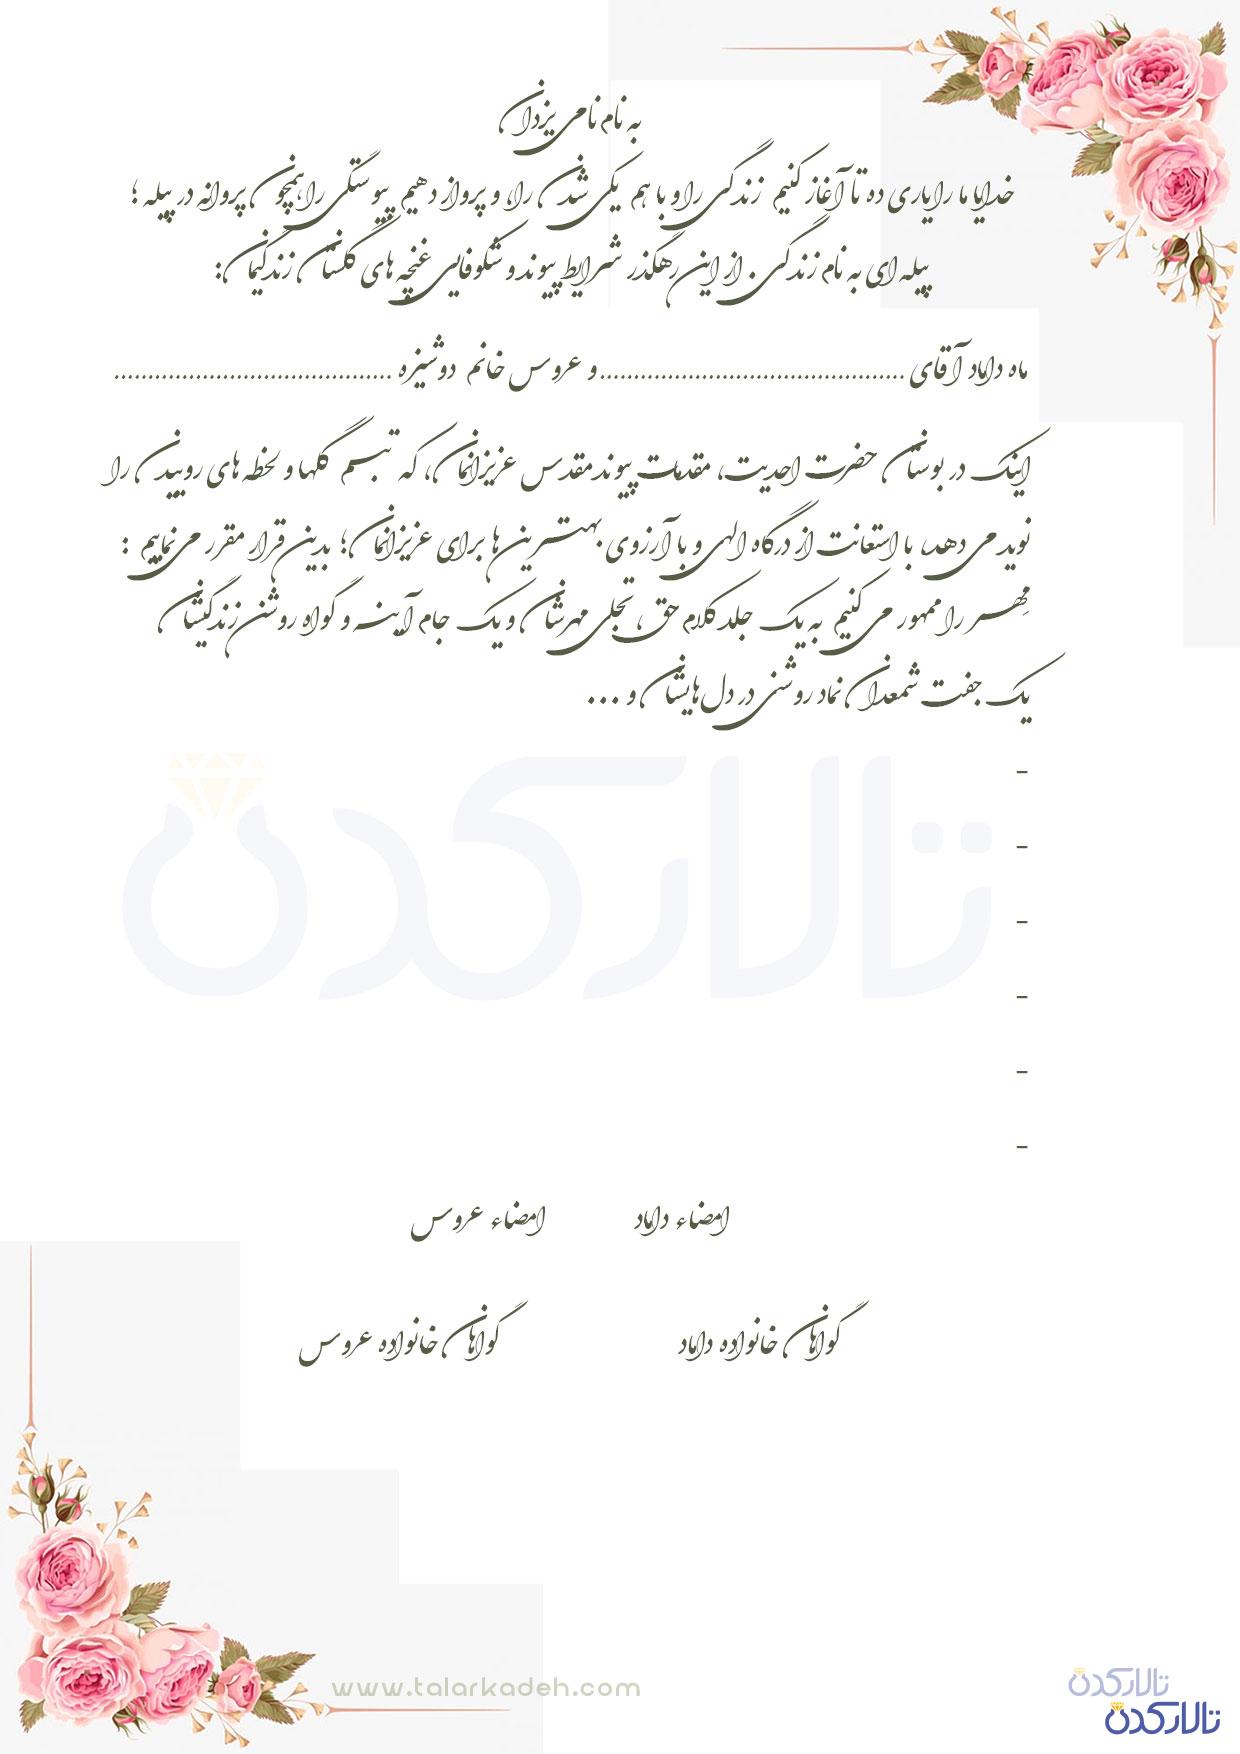 به نام نامی یزدان
خدایا ما را یاری ده تا آغاز کنیم زندگی را و با هم یکی شدن را، و پرواز دهیم پیوستگی را همچون پروانه در پیله ؛
پیله ای به نام زندگی . از این رهگذر شرایط پیوند و شکوفایی غنچه های گلستان زندگیمان:
ماه داماد آقای ............................................. و عروس خانم دوشیزه .........................................
اینک در بوستان حضرت احدیت، مقدمات پیوند مقدس عزیزانمان، که تبسم گلها و لحظه های روییدن را
نوید می دهد، با استعانت از درگاه الهی و با آرزوی بهترین ها برای عزیزانمان؛ بدین قرار مقرر می نماییم :
مِهر را ممهور می کنیم به یک جلد کلام حق، تجلی مهرشان و یک جام آینه و گواه روشن زندگیشان
یک جفت شمعدان نماد روشنی در دل هایشان و ...
-
-
-
-
-
-
تالارکده
امضاء داماد امضاء عروس
گواهان خانواده داماد گواهان خانواده عروس
www.talarkadeh.com
تالارکده
تالارکده